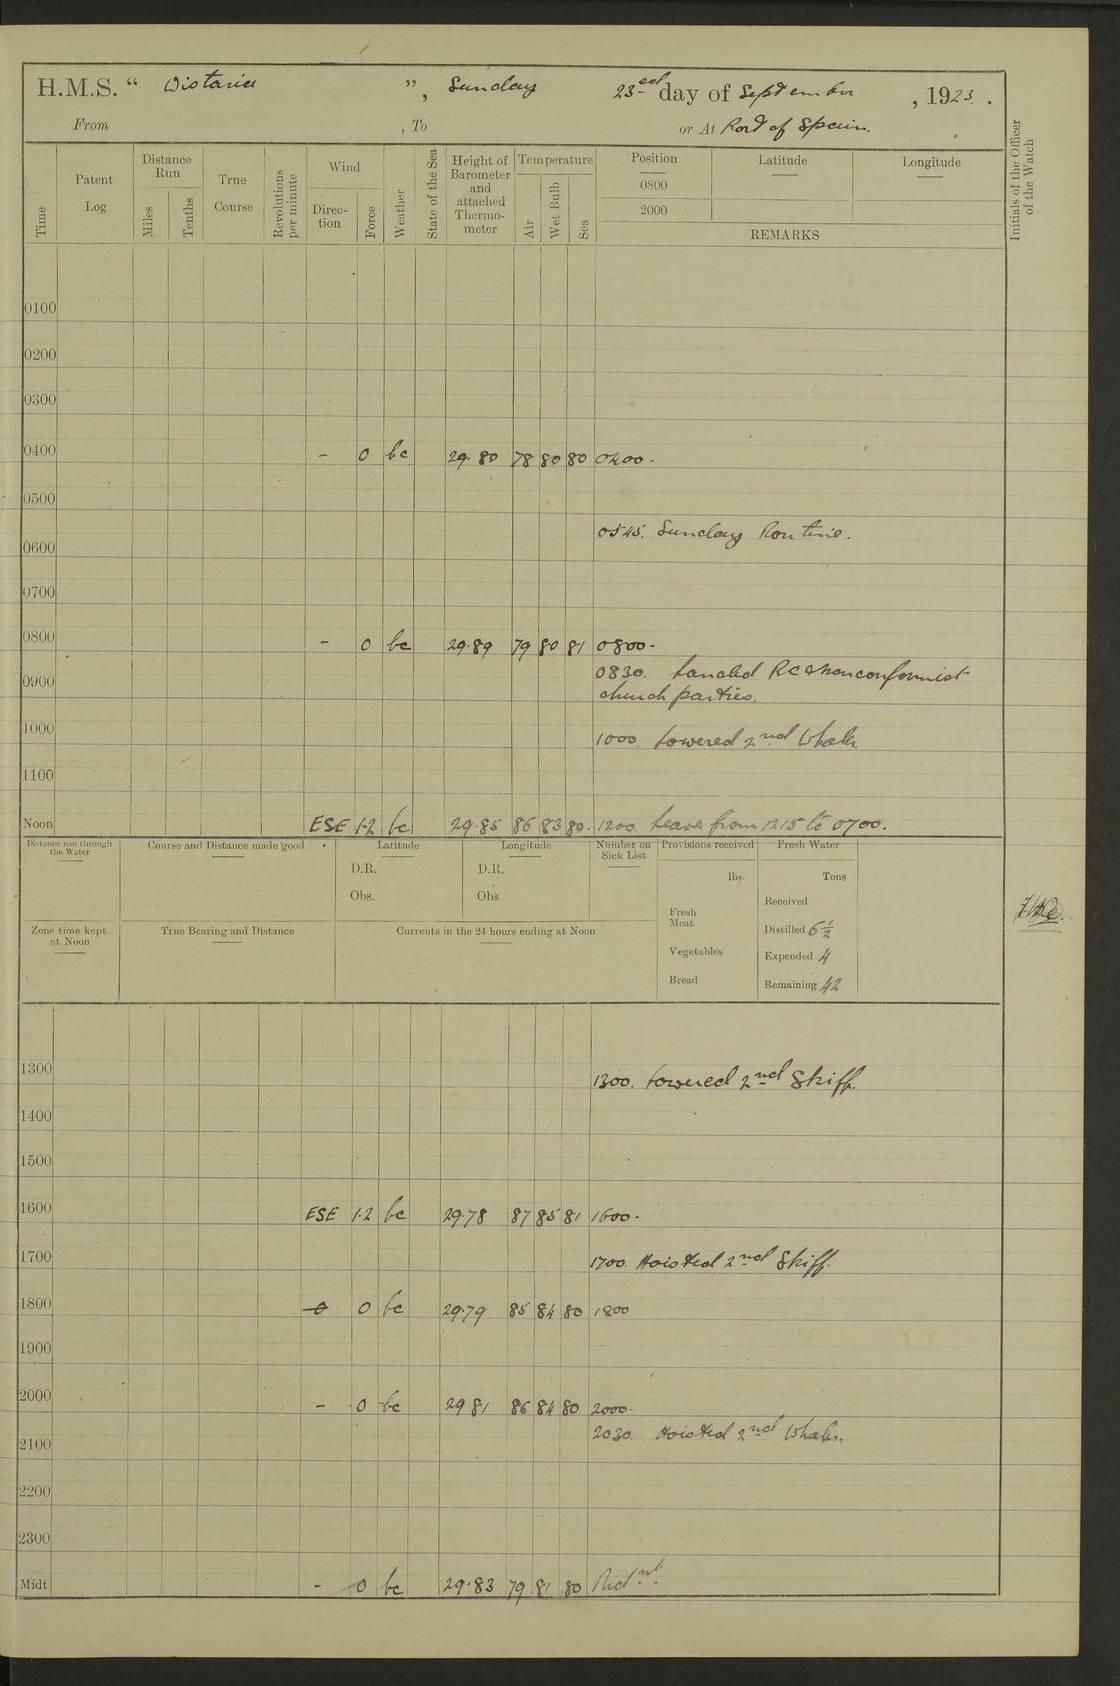 H.M.S. “ Wistaria ”, Sunday 23rd day of September, 1923.
From , To or At Port of Spain.
Time
Patent Log
Distance Run
Miles
Tenths
True Course
Revolutions per minute
Wind
Direction
Force
Weather
State of the Sea
Height of Barometer and attached Thermometer
Temperature
Air
Wet Bulb
Sea
Position
0800
2000
Latitude
Longitude
REMARKS
Initials of the Officer of the Watch
0100
0200
0300
0400 - 0 bc 29.80 78 80 80 0400.
0500
0545. Sunday Routine.
0600
0700
0800 - 0 bc 29.89 79 80 81 0800.
0830. Landed RC & Nonconformist
0900 church parties.
1000 1000. Lowered 2nd Whaler.
1100
Noon ESE 1-2 bc 29.85 86 83 80. 1200. Leave from 1215 to 0700.
Distance run through the Water
Course and Distance made good
Latitude
D.R.
Obs.
Longitude
D.R.
Obs
Number on Sick List
Provisions received
lbs.
Fresh Meat
Vegetables
Bread
Fresh Water
Tons
Received
Distilled 6½
Expended 4
Remaining 42
Zone time kept at Noon
True Bearing and Distance
Currents in the 24 hours ending at Noon
1300 1300. Lowered 2nd Skiff.
1400
1500
1600 ESE 1.2 bc 29.78 87 85 81 1600.
1700 1700. Hoisted 2nd Skiff.
1800 0 bc 29.79 85 84 80 1800
1900
2000 - 0 bc 29 81 86 84 80 2000.
2030. Hoisted 2nd Whaler.
2100
2200
2300
Midt - 0 bc 29.83 79 81 80 Midnt